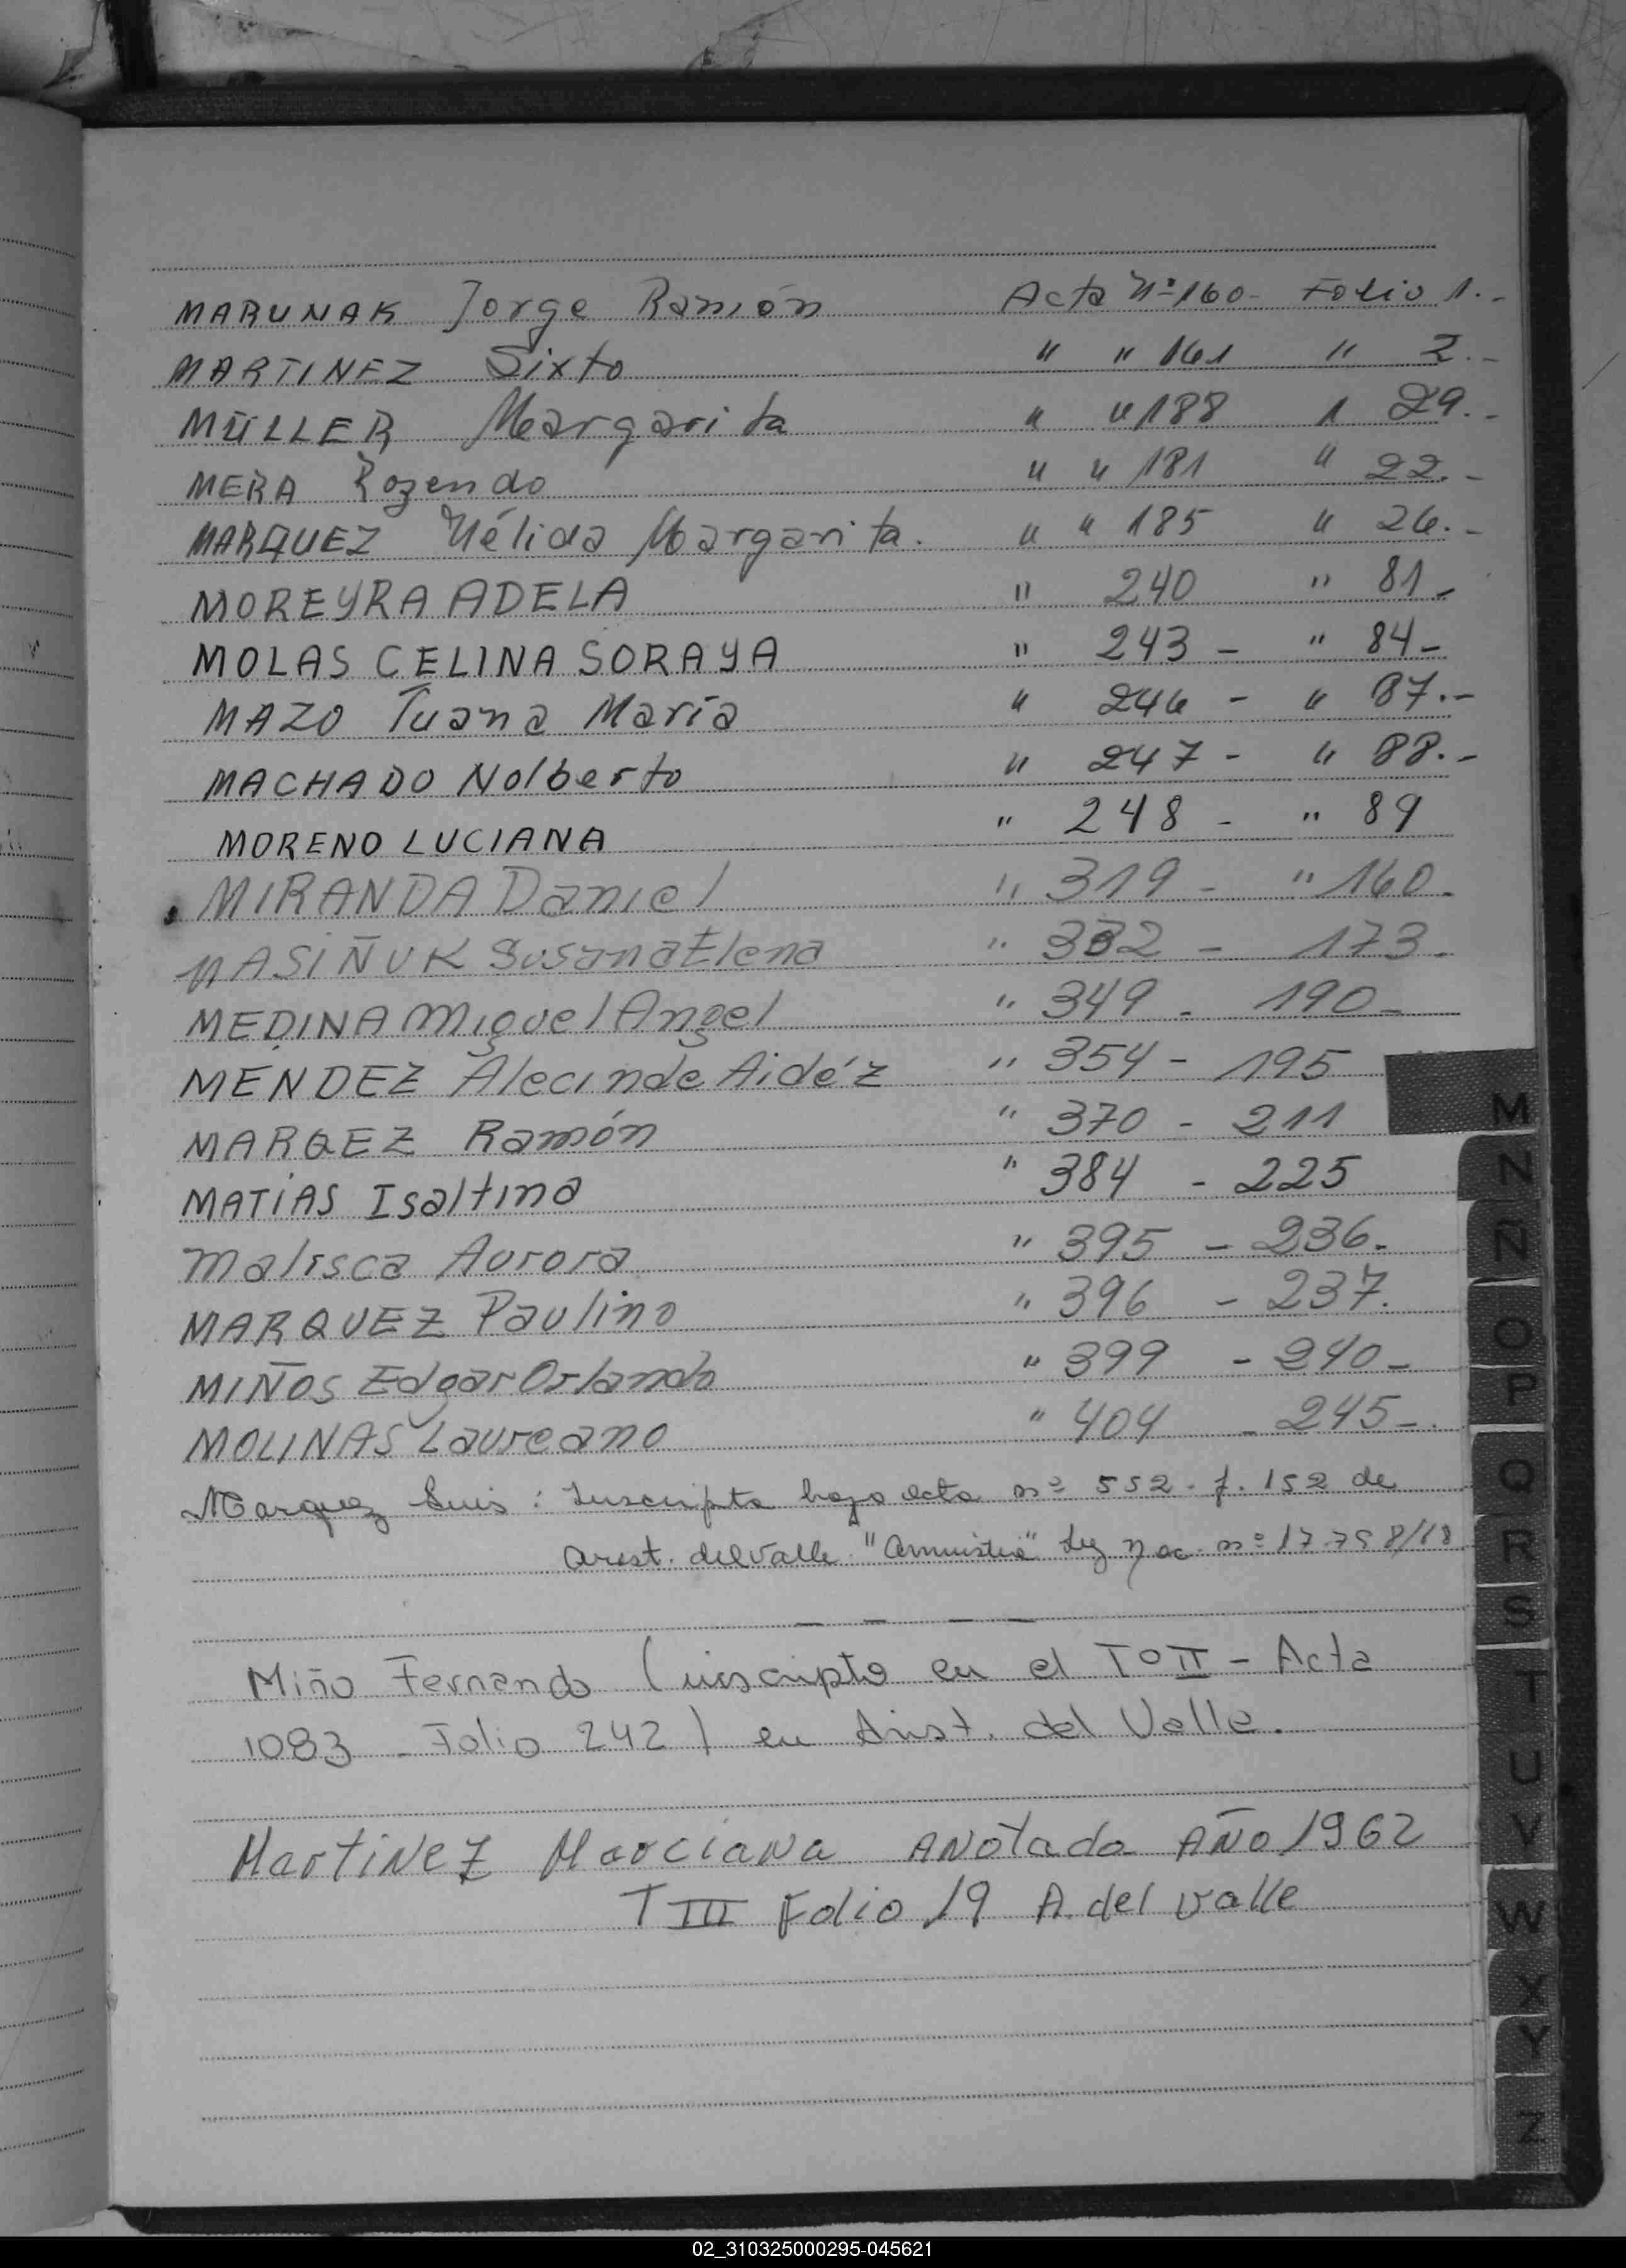 MARUNAK Jorge Ramón Acta Nº 160- Folio 1.-
MARTINEZ Sixto " " 161 " 2.-
MÜLLER Margarita " " 188 " 29.-
MERA Rozendo " " 181 " 22.-
MARQUEZ Nélida Margarita. " " 185 " 26.-
MOREYRA ADELA " 240 " 81-
MOLAS CELINA SORAYA " 243 - " 84-
MAZO Juana María " 246 - " 87.-
MACHADO Nolberto " 247 - " 88.-
MORENO LUCIANA " 248 - " 89
MIRANDA Daniel " 319 - " 160-
MASIÑUK Susana Elena " 332 - 173.
MEDINA Miguel Angel " 349 - 190-
MENDEZ Alecinde Aidéz " 354 - 195
MARQEZ Ramón " 370 - 211
MATÍAS Isaltina " 384 - 225
Malisca Aurora " 395 - 236.
MARQUEZ Paulino " 396 - 237.
MIÑOS Edgar Orlando " 399 - 240-
MOLINAS Laureano " 404 - 245-.
Marquez Luis: Inscripta bajo acta nº 552- f. 152 de
Arist. del Valle. "Amnistia" Ley nac. nº 17.758/68
— — — —
Miño Fernando (inscripto en el Tº II - Acta
1083 - Folio 242) en Arist. del Valle.
Martinez Marciana Anotada Año 1962
T III Folio 19 A. del valle
M
N
Ñ
O
P
Q
R
S
T
U
V
W
X
Y
Z
02_310325000295-045621